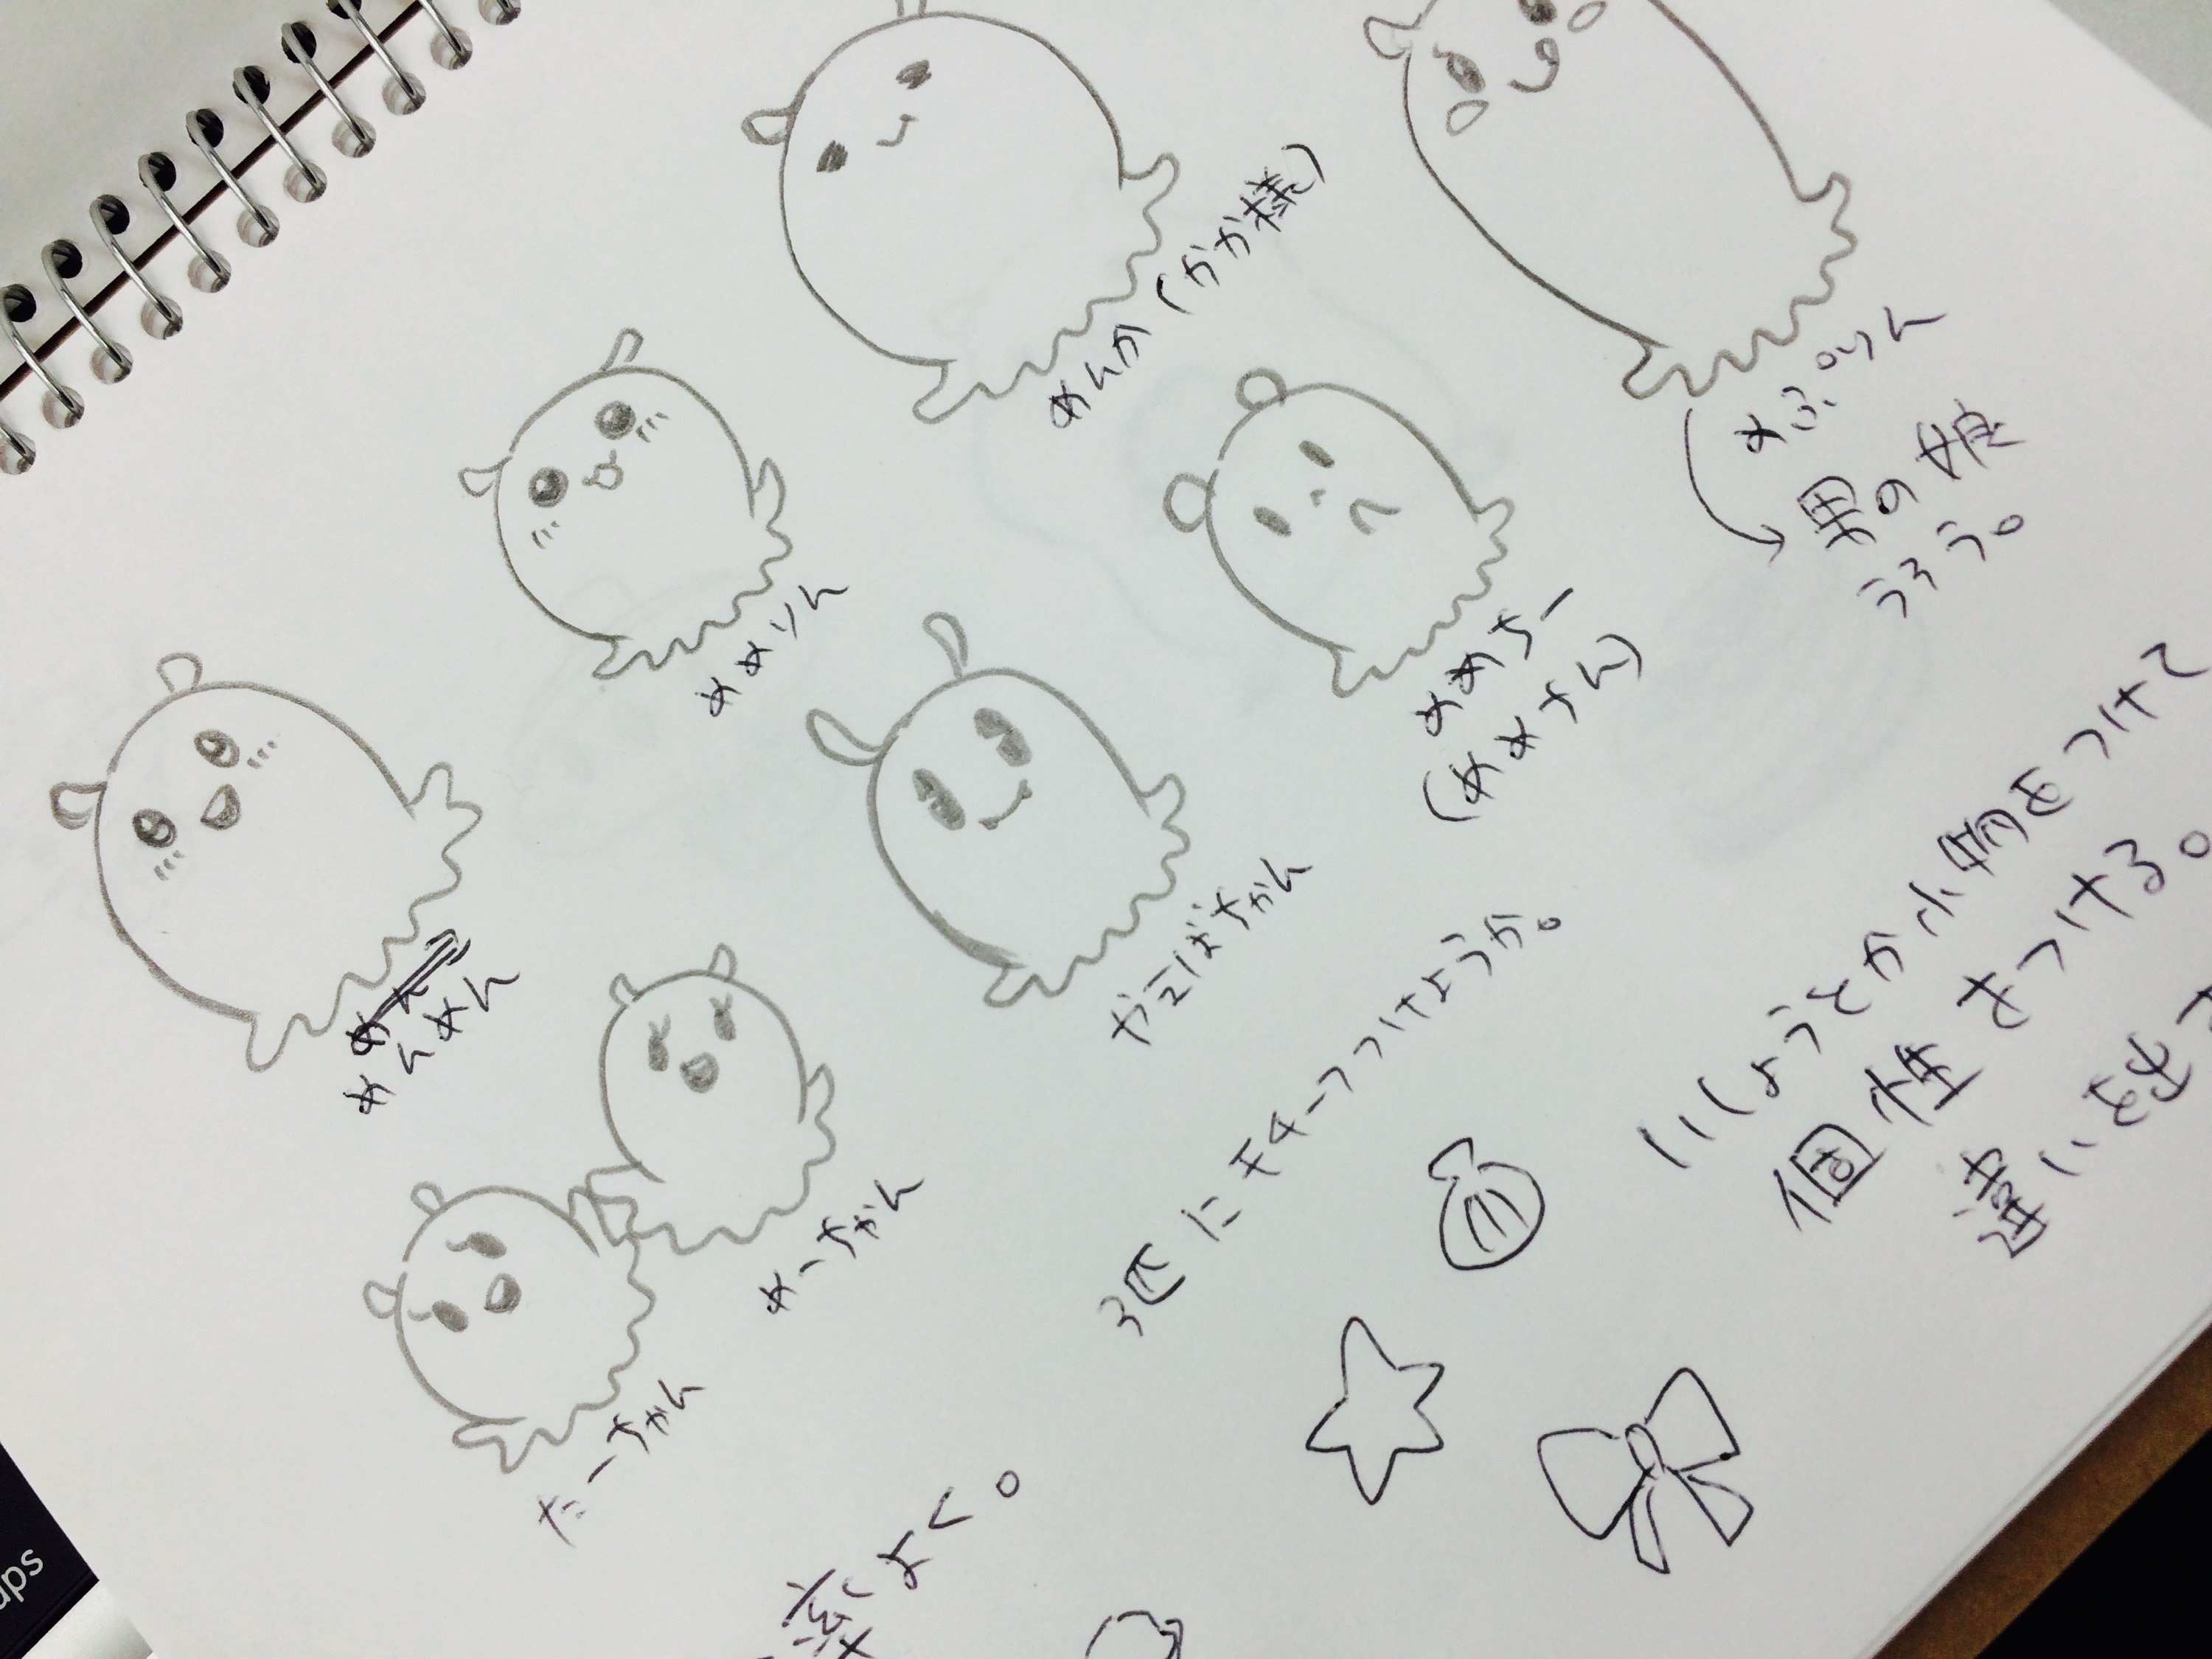 めんか(かか様)
めぷりん
男の娘
うろう。
めめりん
めめちー
(めめちん)
めんめん
やこばちゃん
めーちゃん
たーちゃん
3匹にモチーフつけようか。
いしょうとか小物をつけて
個性をつける。
違いを出
率よく。